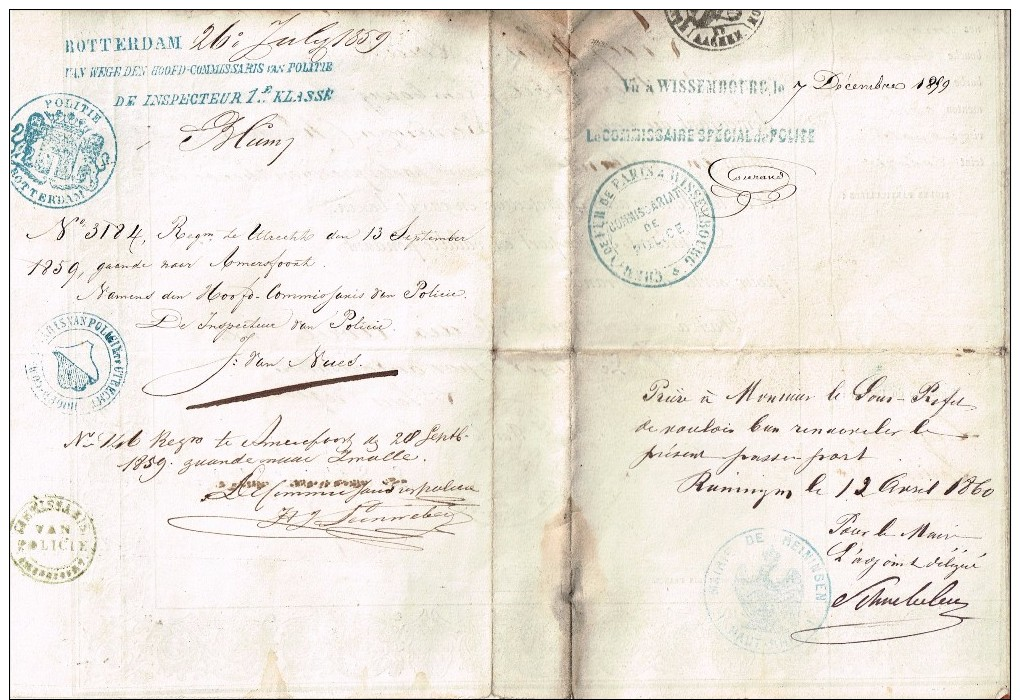 ROTTERDAM 26º July 1859
VAN WEGE DEN HOOFD-COMMISSARIS VAN POLITIE
DE INSPECTEUR 1E KLASSE
POLITIE
ROTTERDAM
Nº 3184, Regm. de Utrecht den 13 September
1859, gaande naar Amersfoort.
Namens den Hoofd-Commissaris van Policie.
De Inspecteur van Policie.
J. van
VAN POLICIE TE UTRECHT
Nº 141 Regro te Amersfoort de 20 Septb
1859. gaande naar Zwolle.
De Commissaris van policie
COMMISSARIS
VAN
POLICIE
AACHEN
Vu à WISSEMBOURG, le 7 Décembre 1859
Le COMMISSAIRE SPÉCIAL de POLICE
CHEMIN DE FER DE PARIS A WISSEMBOURG
COMMISSARIAT
DE
POLICE
Prière à Monsieur le Sous-Préfet
de vouloir bien renouveler le
présent passeport.
le 12 Avril 1860
Pour le Maire
L'adjoint délégué
MAIRIE DE